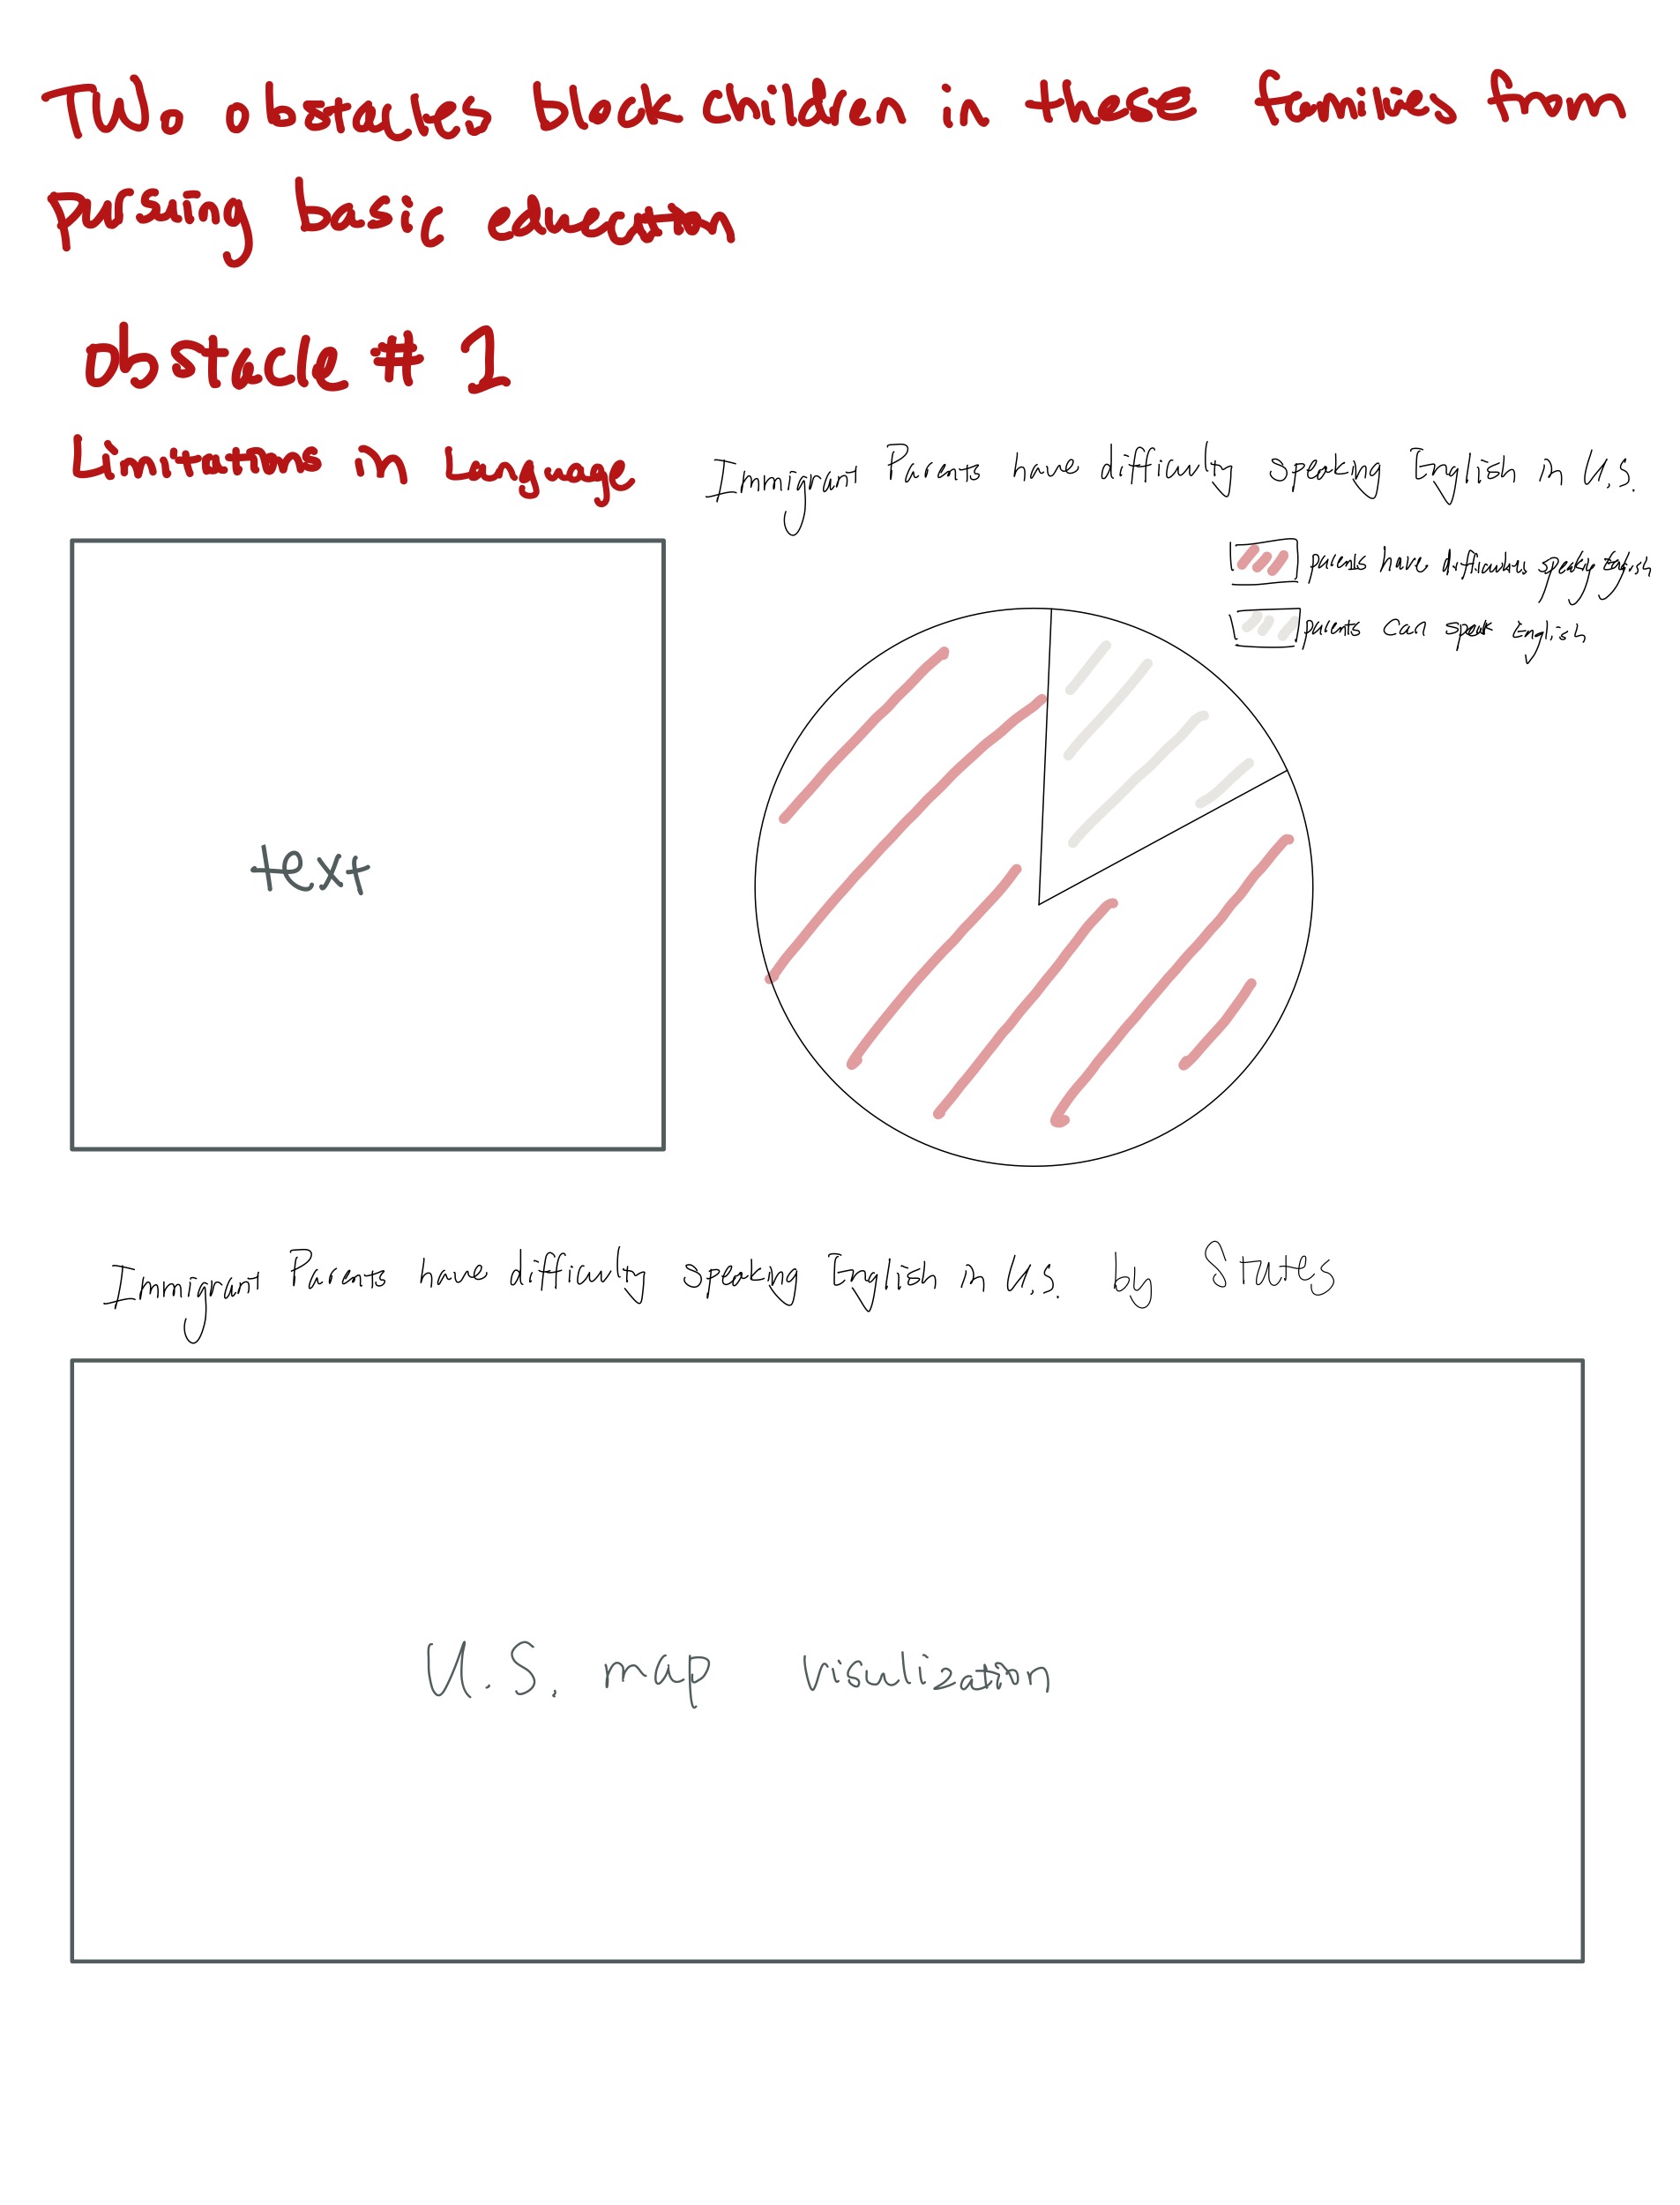 Two obstacles block children in these families from
pursuing basic education
obstacle # 1
Limitations in Language
Immigrant Parents have difficulty speaking English in U.S.
parents have difficulties speaking English
parents can speak English
text
Immigrant Parents have difficulty speaking English in U.S. by States
U.S. map visulization